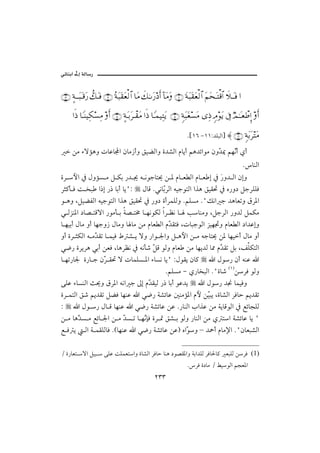 رسالة إلى ابنتي
[البلد: ١١- ١٦].
أي أنهم يمدّون موائدهم أيام الشدة والضيق وأزمان المجاعات وهؤلاء من خير
الناس.
وإن الدور في إطعام الطعام لمن يحتاجونه يجدر بكل مسؤول في الأسرة
فللرجل دوره في تحقيق هذا التوجيه الربّاني. قال ﷺ : "يا أبا ذر إذا طبخت فأكثر
المرق وتعاهد جيرانك". مسلم. وللمرأة دور في تحقيق هذا التوجيه الفضيل، وهو
مكمل لدور الرجل، ومناسب لها نظراً لكونها مختصة بأمور الاقتصاد المنزلي
وإعداد الطعام وتجهيز الوجبات، فتقدّم الطعام من مالها ومال زوجها أو مال أبيها
أو مال أخيها لمن يحتاجه من الأهل والجوار ولا يشترط فيما تقدّمه الكثرة أو
التكلّف، بل تقدّم مما لديها من طعام ولو قلّ شأنه في نظرها، فعن أبي هريرة رضي
الله عنه أن رسول الله ﷺ كان يقول: "يا نساء المسلمات لا تحقرنّ جارة لجارتها
ولو فرسن(1) شاة". البخاري – مسلم.
وفيما نجد رسول الله ﷺ يدعو أبا ذر ليقدّم إلى جيرانه المرق ويحث النساء على
تقديم حافر الشاة، يبيّن لأم المؤمنين عائشة رضي الله عنها فضل تقديم شق التمرة
للجائع في الوقاية من عذاب النار. عن عائشة رضي الله عنها قال رسول الله ﷺ :
" يا عائشة استتري من النار ولو بشق تمرة فإنّها تسدّ من الجائع مسدّها من
الشبعان". الإمام أحمد – وسرّاه (عن عائشة رضي الله عنها). فاللقمة التي يترفع
(1) فرسن للبعير كالحافر للدابة والمقصود هنا حافر الشاة واستعملت على سبيل الاستعارة /
المعجم الوسيط / مادة فرس.
٢٣٣